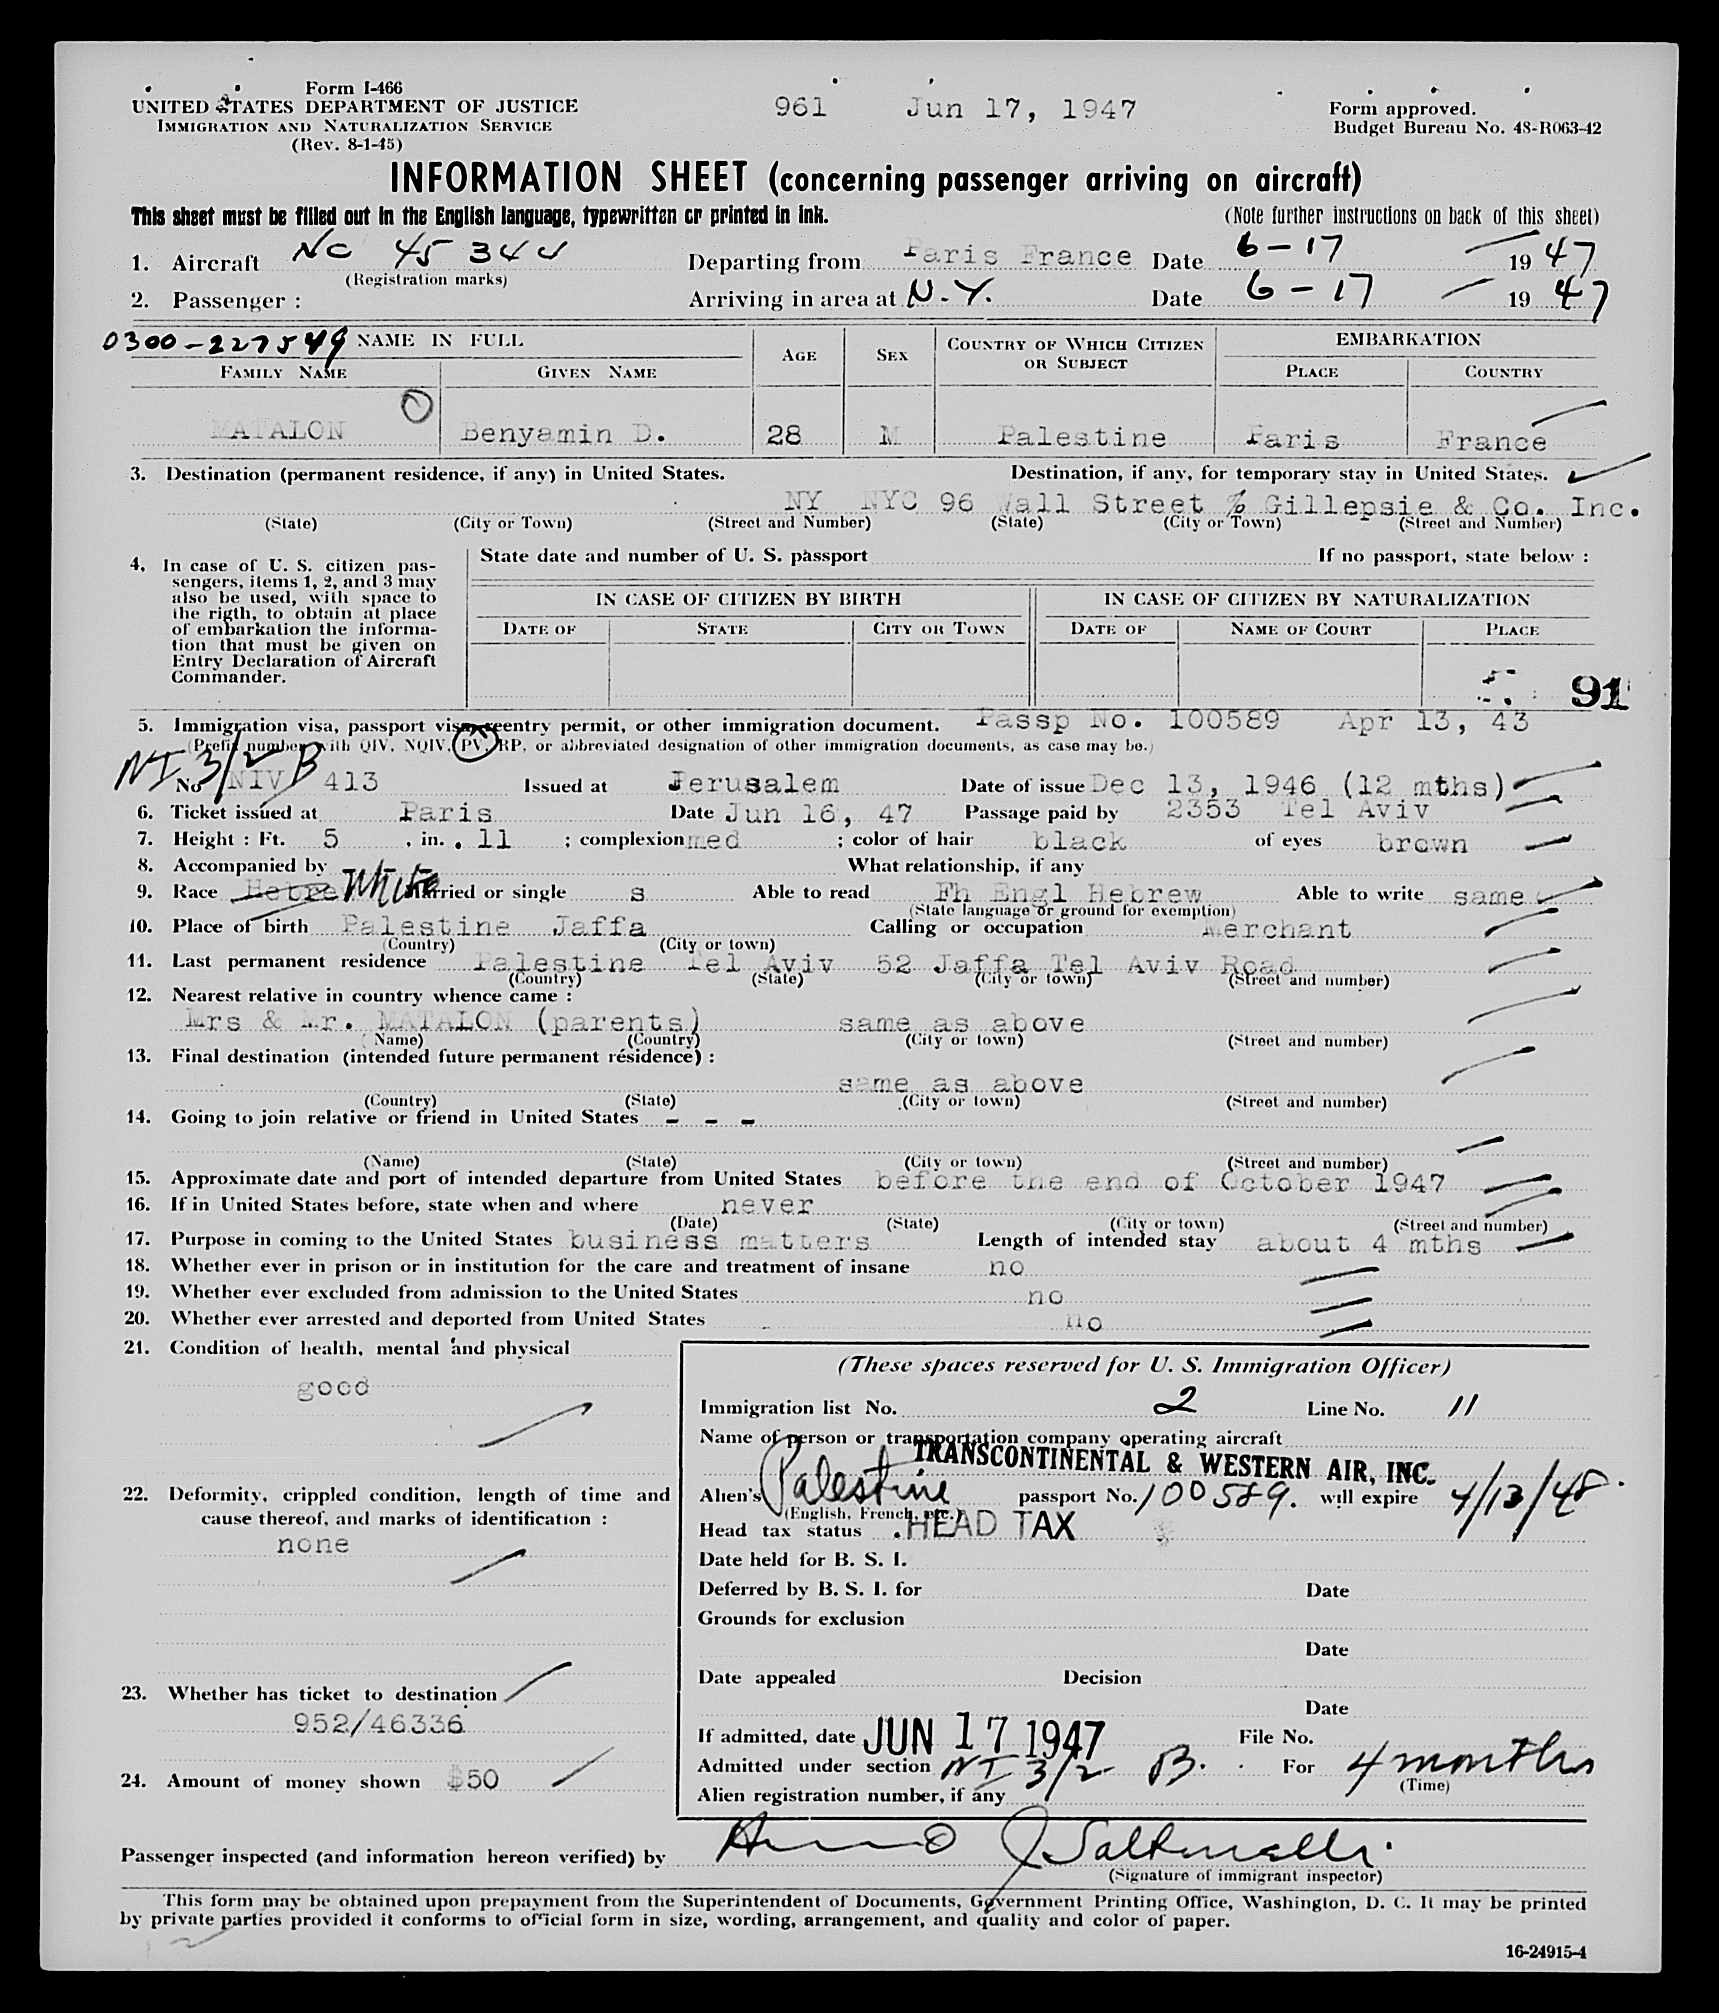 Form I-466
UNITED STATES DEPARTMENT OF JUSTICE 961 Jun 17, 1947 Form approved.
IMMIGRATION AND NATURALIZATION SERVICE Budget Bureau No. 43-R063-42
(Rev. 8-1-45)
INFORMATION SHEET (concerning passenger arriving on aircraft)
This sheet must be filled out in the English language, typewritten or printed in ink. (Note further instructions on back of this sheet)
1. Aircraft NC 45344 Departing from Paris France Date 6-17 1947
(Registration marks)
2. Passenger : Arriving in area at N.Y. Date 6-17 1947
0300-227549 NAME IN FULL AGE SEX COUNTRY OF WHICH CITIZEN OR SUBJECT EMBARKATION
FAMILY NAME GIVEN NAME PLACE COUNTRY
MATALON Benyamin D. 28 M Palestine Paris France
3. Destination (permanent residence, if any) in United States. Destination, if any, for temporary stay in United States.
NY NYC 96 Wall Street % Gillepsie & Co. Inc.
(State) (City or Town) (Street and Number) (State) (City or Town) (Street and Number)
4. In case of U. S. citizen pas- State date and number of U. S. passport If no passport, state below :
sengers, items 1, 2, and 3 may
also be used, with space to IN CASE OF CITIZEN BY BIRTH IN CASE OF CITIZEN BY NATURALIZATION
the rigth, to obtain at place
of embarkation the informa- DATE OF STATE CITY OR TOWN DATE OF NAME OF COURT PLACE
tion that must be given on
Entry Declaration of Aircraft
Commander.
91
5. Immigration visa, passport visa, reentry permit, or other immigration document. Passp No. 100589 Apr 13, 43
(Prefix number with QIV, NQIV, PV, RP, or abbreviated designation of other immigration documents, as case may be.)
NI 3/2 B
No NIV 413 Issued at Jerusalem Date of issue Dec 13, 1946 (12 mths)
6. Ticket issued at Paris Date Jun 16, 47 Passage paid by 2353 Tel Aviv
7. Height : Ft. 5 , in. . 11 ; complexion med ; color of hair black of eyes brown
8. Accompanied by What relationship, if any
9. Race Hebrew White Married or single s Able to read Fh Engl Hebrew Able to write same
(State language or ground for exemption)
10. Place of birth Palestine Jaffa Calling or occupation Merchant
(Country) (City or town)
11. Last permanent residence Palestine Tel Aviv 52 Jaffa Tel Aviv Road
(Country) (State) (City or town) (Street and number)
12. Nearest relative in country whence came :
Mrs & Mr. MATALON (parents) same as above
(Name) (Country) (City or town) (Street and number)
13. Final destination (intended future permanent résidence) :
same as above
(Country) (State) (City or town) (Street and number)
14. Going to join relative or friend in United States - - -
(Name) (State) (City or town) (Street and number)
15. Approximate date and port of intended departure from United States before the end of October 1947
16. If in United States before, state when and where never
(Date) (State) (City or town) (Street and number)
17. Purpose in coming to the United States business matters Length of intended stay about 4 mths
18. Whether ever in prison or in institution for the care and treatment of insane no
19. Whether ever excluded from admission to the United States no
20. Whether ever arrested and deported from United States no
21. Condition of health, mental and physical
good
(These spaces reserved for U. S. Immigration Officer)
Immigration list No. 2 Line No. 11
Name of person or transportation company operating aircraft
TRANSCONTINENTAL & WESTERN AIR, INC.
22. Deformity, crippled condition, length of time and cause thereof, and marks of identification :
none
Alien's Palestine passport No. 100589. will expire 4/13/48.
(English, French, etc.)
Head tax status HEAD TAX
Date held for B. S. I.
Deferred by B. S. I. for Date
Grounds for exclusion
Date
Date appealed Decision
Date
23. Whether has ticket to destination
952/46336
If admitted, date JUN 17 1947 File No.
24. Amount of money shown $50
Admitted under section NI 3/2 B. For 4 months
(Time)
Alien registration number, if any
Passenger inspected (and information hereon verified) by
(Signature of immigrant inspector)
This form may be obtained upon prepayment from the Superintendent of Documents, Government Printing Office, Washington, D. C. It may be printed
by private parties provided it conforms to official form in size, wording, arrangement, and quality and color of paper.
16-24915-4